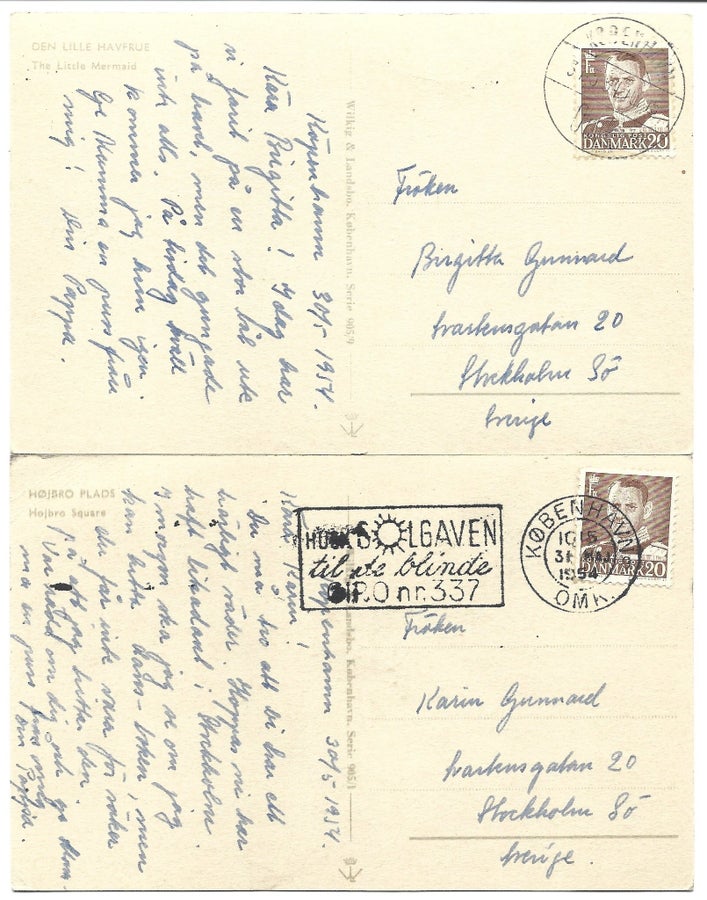 DEN LILLE HAVFRUE
The Little Mermaid
Köpenhamn 30/5 1954.
Kära Birgitta! I dag har
vi farit på en stor båt ute
på havet, men det gungade
inte alls. På tisdag kväll
kommer jag hem igen.
Ge Mamma en puss från
mig! Din Pappa.
Wilkig & Landsbo. København. Serie 905/9
KØBENHAVN
KONGELIG POST
DANMARK 20
Fröken
Birgitta Gunnard
Svartensgatan 20
Stockholm Sö
Sverige
HØJBRO PLADS
Hojbro Square
30/5 1954.
Kära Karin!
Du må tro att vi har ett
härligt väder. Hoppas ni har
haft likadant i Stockholm.
I morgon ska jag se om jag
kan hitta Hans-boken, men
du får inte vara för
att jag hittar den.
om dig och ge
en puss från mig
Din Pappa.
Landsbo. København. Serie 905/1
HUSK SOLGAVEN
til de blinde
GIRO nr. 337
KØBENHAVN
31 MAJ
1954
OMK.
DANMARK 20
Fröken
Karin Gunnard
Svartensgatan 20
Stockholm Sö
Sverige.